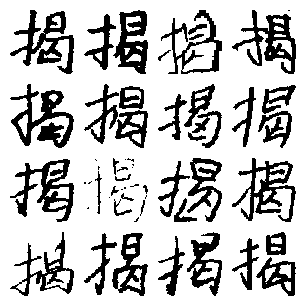 揭揭揭揭
揭揭揭揭
揭揭揭揭
揭揭揭揭